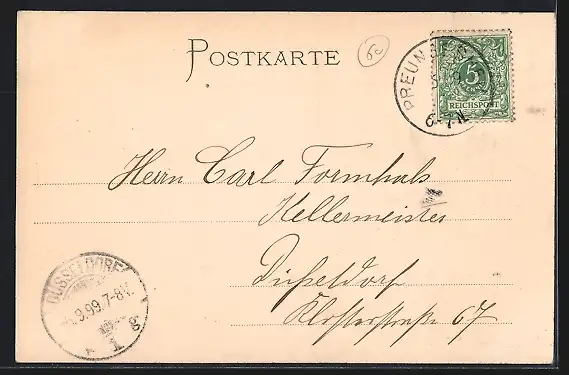 POSTKARTE
6c
PREUN
5
REICHSPOST
6-7N
Herrn Carl Formhals
Kellermeister
Düsseldorf
Klosterstraße 67
DÜSSELDORF
9.99.7-8V.
1 g